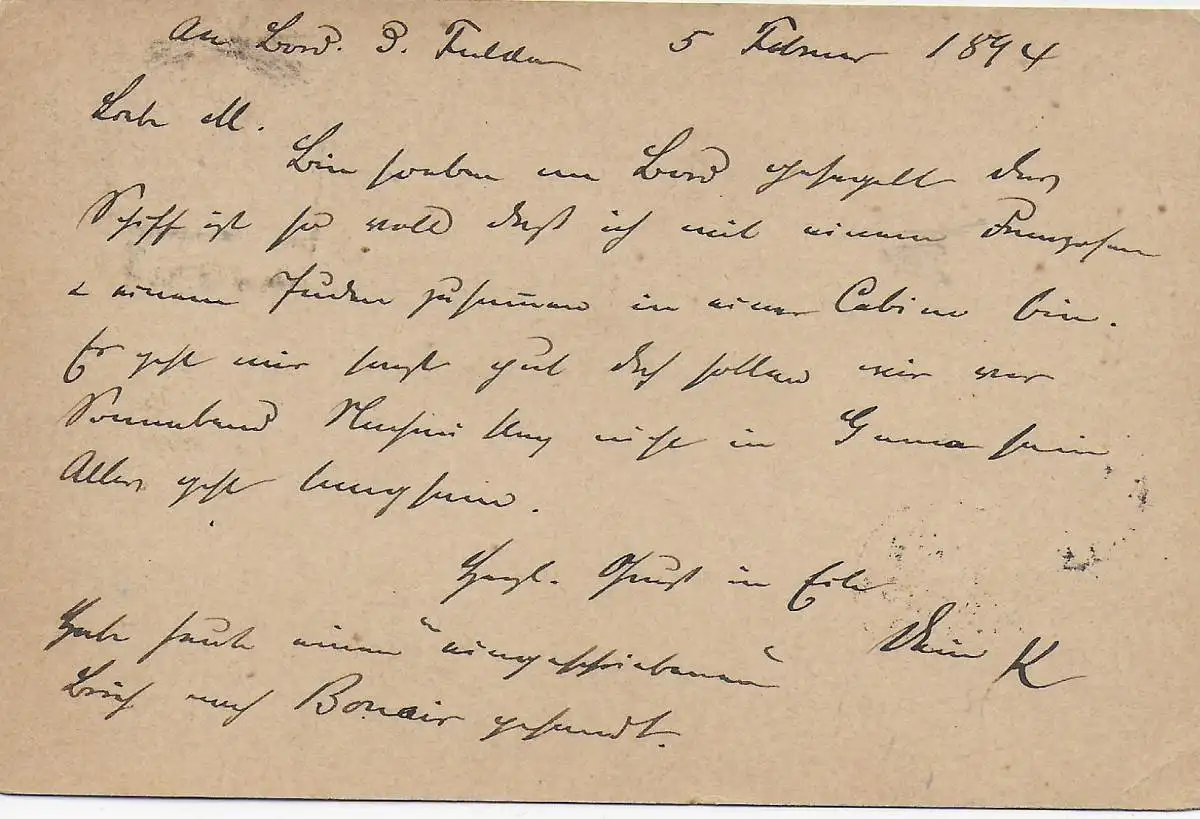 An Bord. D. Fulda 5 Februar 1894
Liebe M.
Bin soeben an Bord gesegelt das
Schiff ist so voll daß ich mit einem Franzosen
& einem Juden zusamen in einer Cabine bin.
Es geht mir sonst gut doch sollen wir vor
Sonnabend Nachmittag nicht in Genua sein
Alles geht langsam.
Herzl. Gruß in Eile
Dein K
Habe heute einen "eingeschriebenen"
Brief nach gesandt.